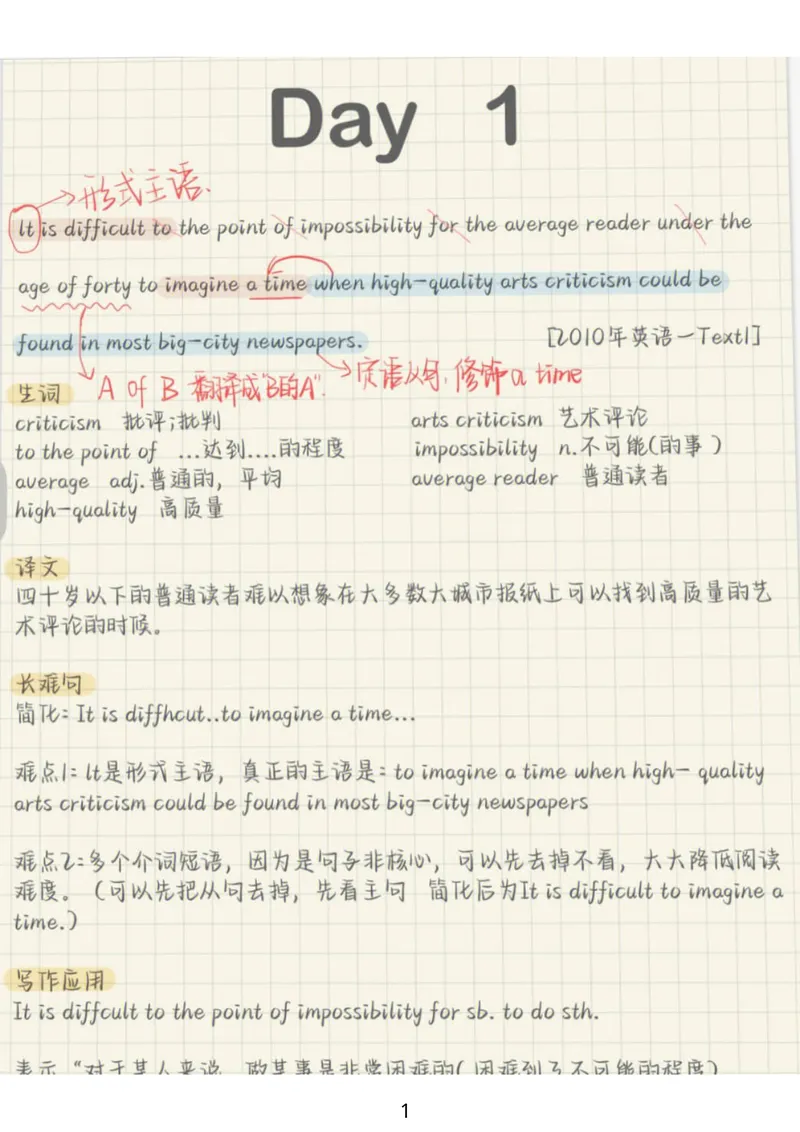 Day 1
形式主语.
It is difficult to the point of impossibility for the average reader under the
age of forty to imagine a time when high-quality arts criticism could be
found in most big-city newspapers. [2010年英语一Text1]
A of B 翻译成"B的A". 定语从句,修饰 a time
生词
criticism 批评;批判 arts criticism 艺术评论
to the point of ...达到....的程度 impossibility n.不可能(的事)
average adj.普通的, 平均 average reader 普通读者
high-quality 高质量
译文
四十岁以下的普通读者难以想象在大多数大城市报纸上可以找到高质量的艺
术评论的时候。
长难句
简化: It is diffhcut..to imagine a time...
难点1: It是形式主语, 真正的主语是: to imagine a time when high- quality
arts criticism could be found in most big-city newspapers
难点2:多个介词短语, 因为是句子非核心, 可以先去掉不看, 大大降低阅读
难度。(可以先把从句去掉, 先看主句 简化后为It is difficult to imagine a
time.)
写作应用
It is diffcult to the point of impossibility for sb. to do sth.
表示 "对于某人来说, 做某事是非常困难的( 困难到了不可能的程度)
1